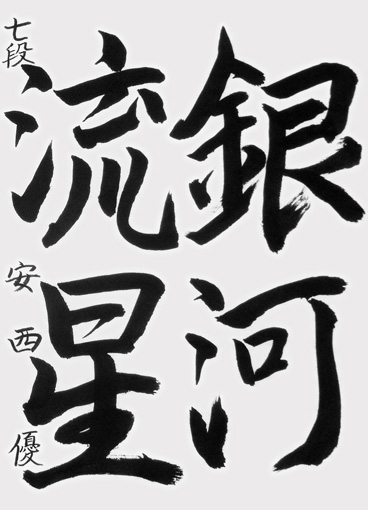 銀河
流星
七段 安西優